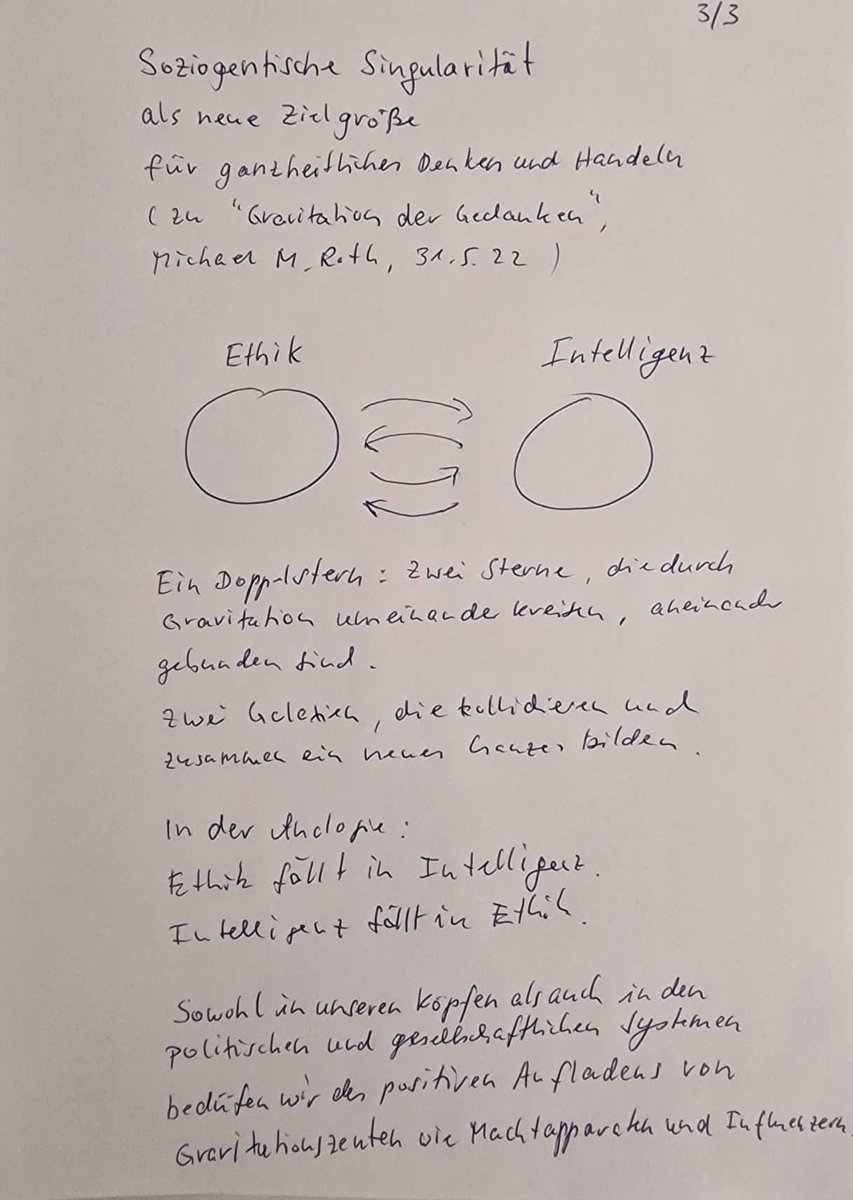 3/3
Soziogentische Singularität
als neue Zielgröße
für ganzheitliches Denken und Handeln
( zu "Gravitation der Gedanken",
Michael M. Roth, 31.5.22 )
Ethik Intelligenz
Ein Doppelstern : zwei Sterne, die durch
Gravitation umeinander kreisen, aneinander
gebunden sind.
Zwei Galaxien, die kollidieren und
zusammen ein neues Ganzes bilden.
In der Analogie :
Ethik fällt in Intelligenz.
Intelligenz fällt in Ethik.
Sowohl in unseren Köpfen als auch in den
politischen und gesellschaftlichen Systemen
bedüfen wir des positiven Aufladens von
Gravitationszenten wie Machtapparaten und Influenzern.